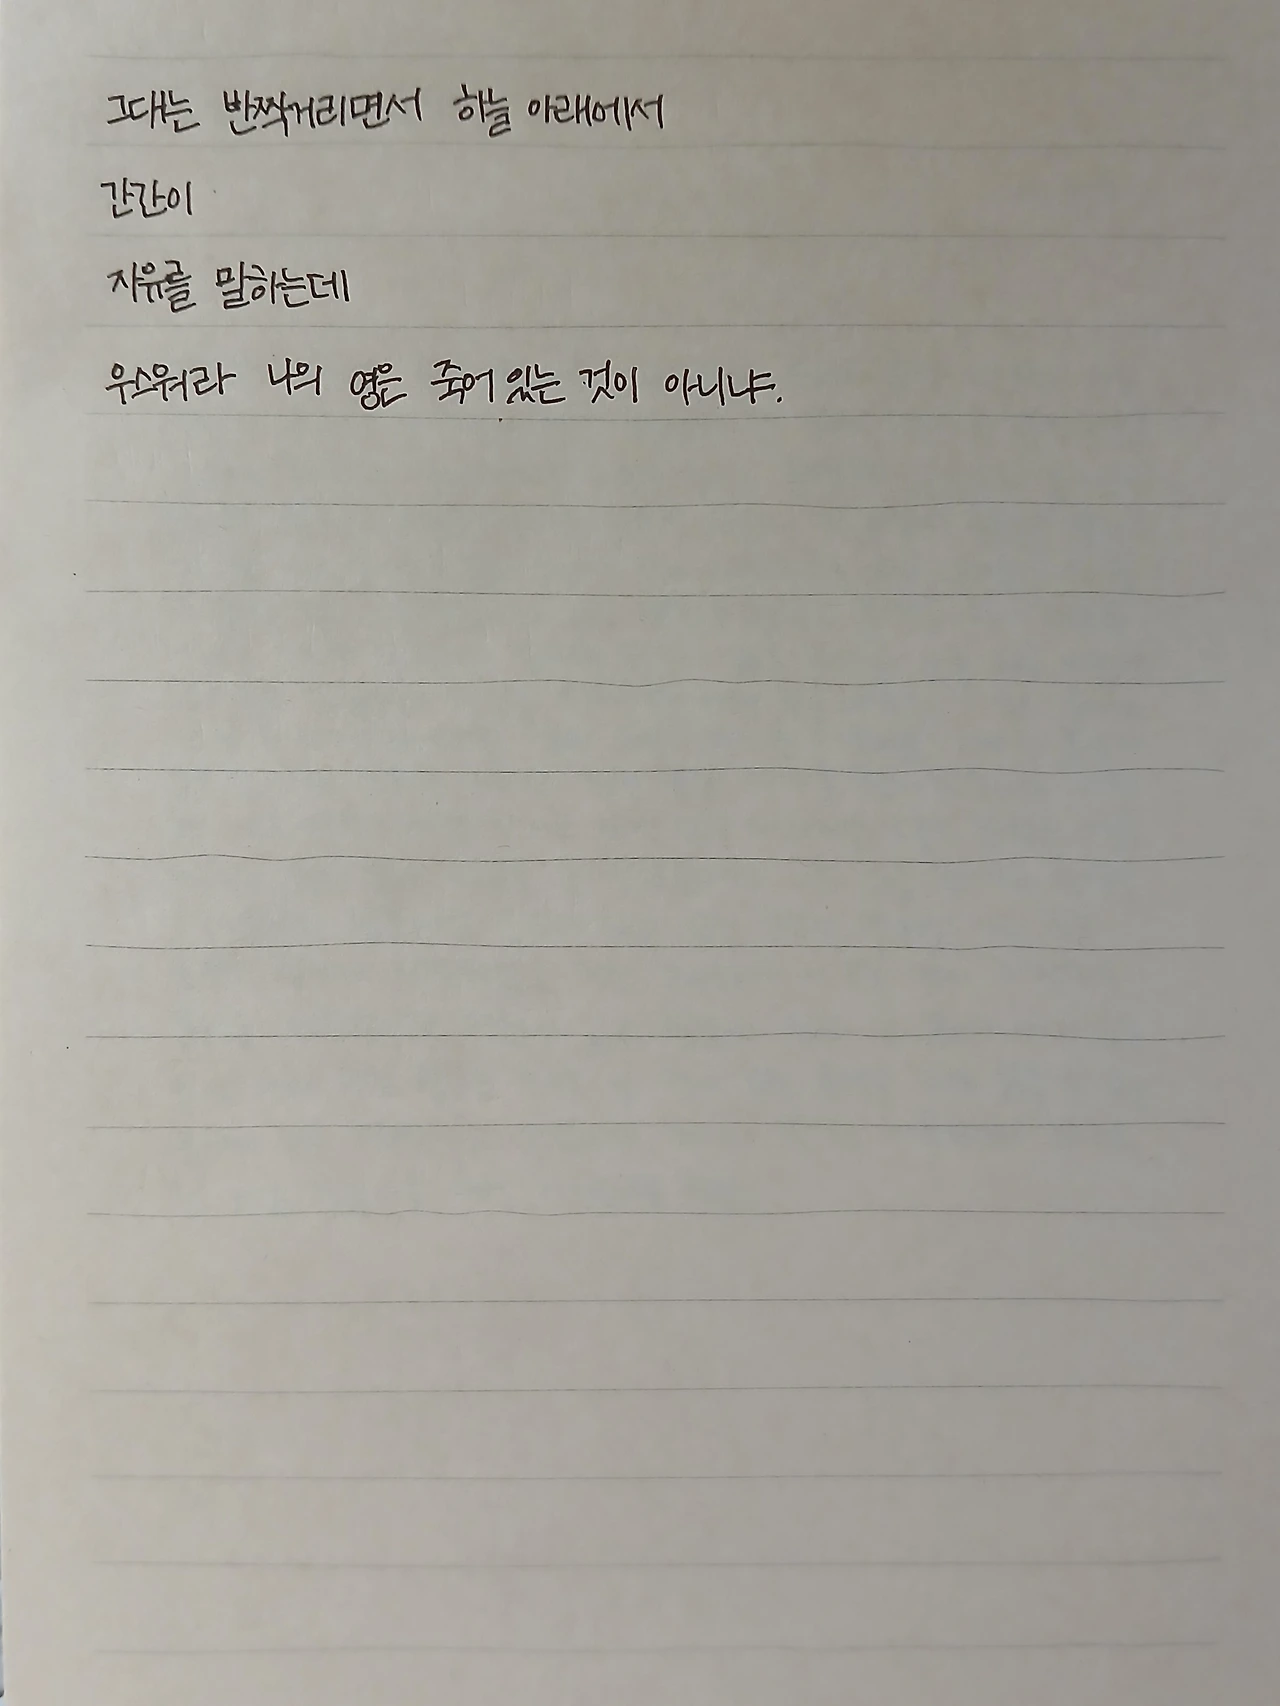 그대는 반짝거리면서 하늘 아래에서
간간이
자유를 말하는데
우스워라 나의 영은 죽어 있는 것이 아니냐.